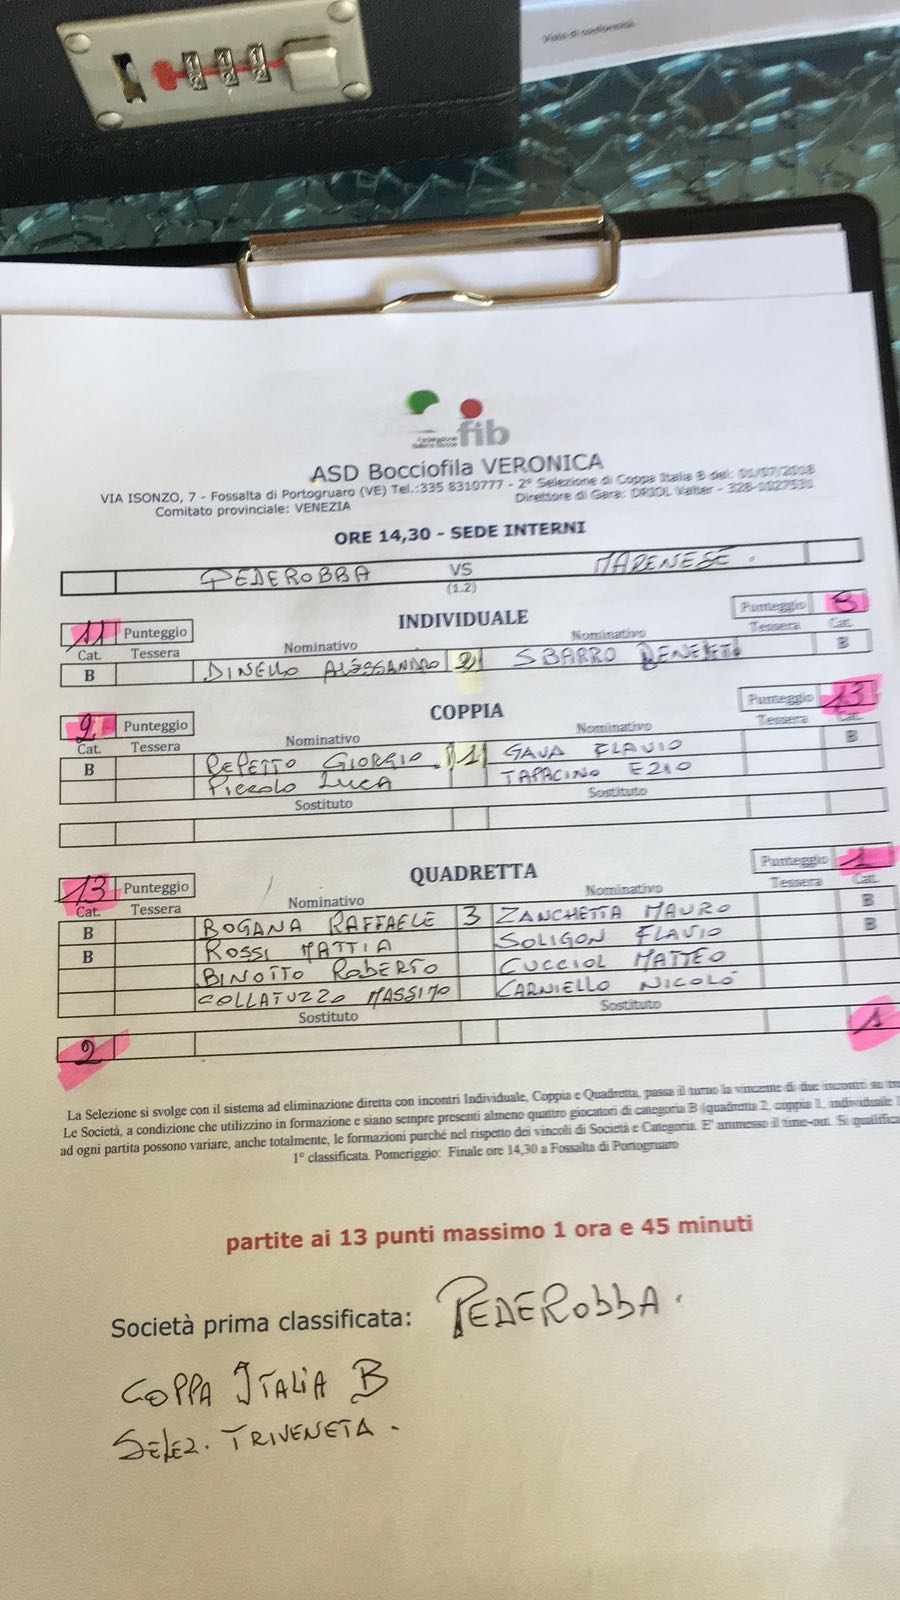 Visto di conformità
Federazione
Italiana Bocce
fib
ASD Bocciofila VERONICA
VIA ISONZO, 7 - Fossalta di Portogruaro (VE) Tel.:335 8310777 - 2° Selezione di Coppa Italia B del: 01/07/2018
Comitato provinciale: VENEZIA Direttore di Gara: DRIOL Valter - 328-1027531
ORE 14,30 - SEDE INTERNI
PEDEROBBA VS MARENESE.
(1.2)
11 Punteggio INDIVIDUALE Punteggio
Cat. Tessera Nominativo Nominativo Tessera Cat.
B DINELLO ALESSANDRO 2 SBARRO B
2 Punteggio COPPIA Punteggio 13
Cat. Tessera Nominativo Nominativo Tessera Cat.
B REPETTO GIORGIO. 1 GAVA FLAVIO B
PICCOLO LUCA TAPACINO EZIO
Sostituto Sostituto
13 Punteggio QUADRETTA Punteggio 1
Cat. Tessera Nominativo Nominativo Tessera Cat.
B BOGANA RAFFAELE 3 ZANCHETTA MAURO B
B ROSSI MATTIA SOLIGON FLAVIO B
BINOTTO ROBERTO CUCCIOL MATTEO
COLLATUZZO MASSIMO CARNIELLO NICOLÒ
Sostituto Sostituto
2 1
La Selezione si svolge con il sistema ad eliminazione diretta con incontri Individuale, Coppia e Quadretta, passa il turno la vincente di due incontri su tre
Le Società, a condizione che utilizzino in formazione e siano sempre presenti almeno quattro giocatori di categoria B (quadretta 2, coppia 1, individuale 1
ad ogni partita possono variare, anche totalmente, le formazioni purché nel rispetto dei vincoli di Società e Categoria. E' ammesso il time-out. Si qualifica
1° classificata. Pomeriggio: Finale ore 14,30 a Fossalta di Portogruaro
partite ai 13 punti massimo 1 ora e 45 minuti
Società prima classificata: PEDEROBBA.
COPPA ITALIA B
SELEZ. TRIVENETA.